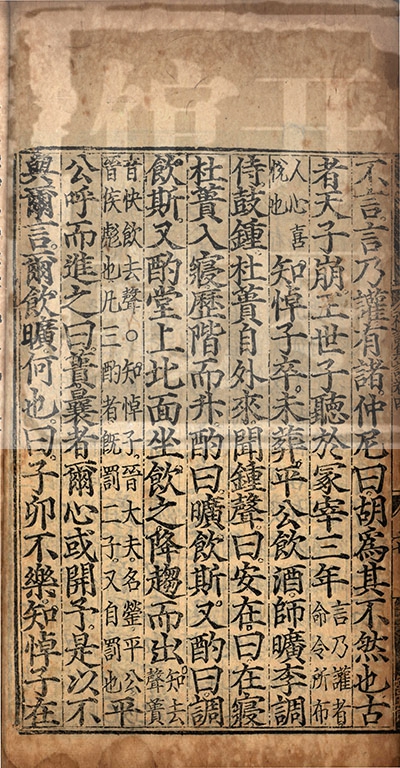 不言言乃讙有諸仲尼曰胡爲其不然也古
者天子崩王世子聽於冢宰三年言乃讙者命令所布
人心喜悅也知悼子卒未葬平公飲酒師曠李調
侍鼓鍾杜蕢自外來聞鍾聲曰安在曰在寢
杜蕢入寢歷階而升酌曰曠飲斯又酌曰調
飲斯又酌堂上北面坐飲之降趨而出知去聲蕢
音快飲去聲○知悼子晉大夫名罃平公晉侯彪也凡三酌者旣罰二子又自罰也平
公呼而進之曰蕢曩者爾心或開予是以不
與爾言爾飲曠何也曰子卯不樂知悼子在